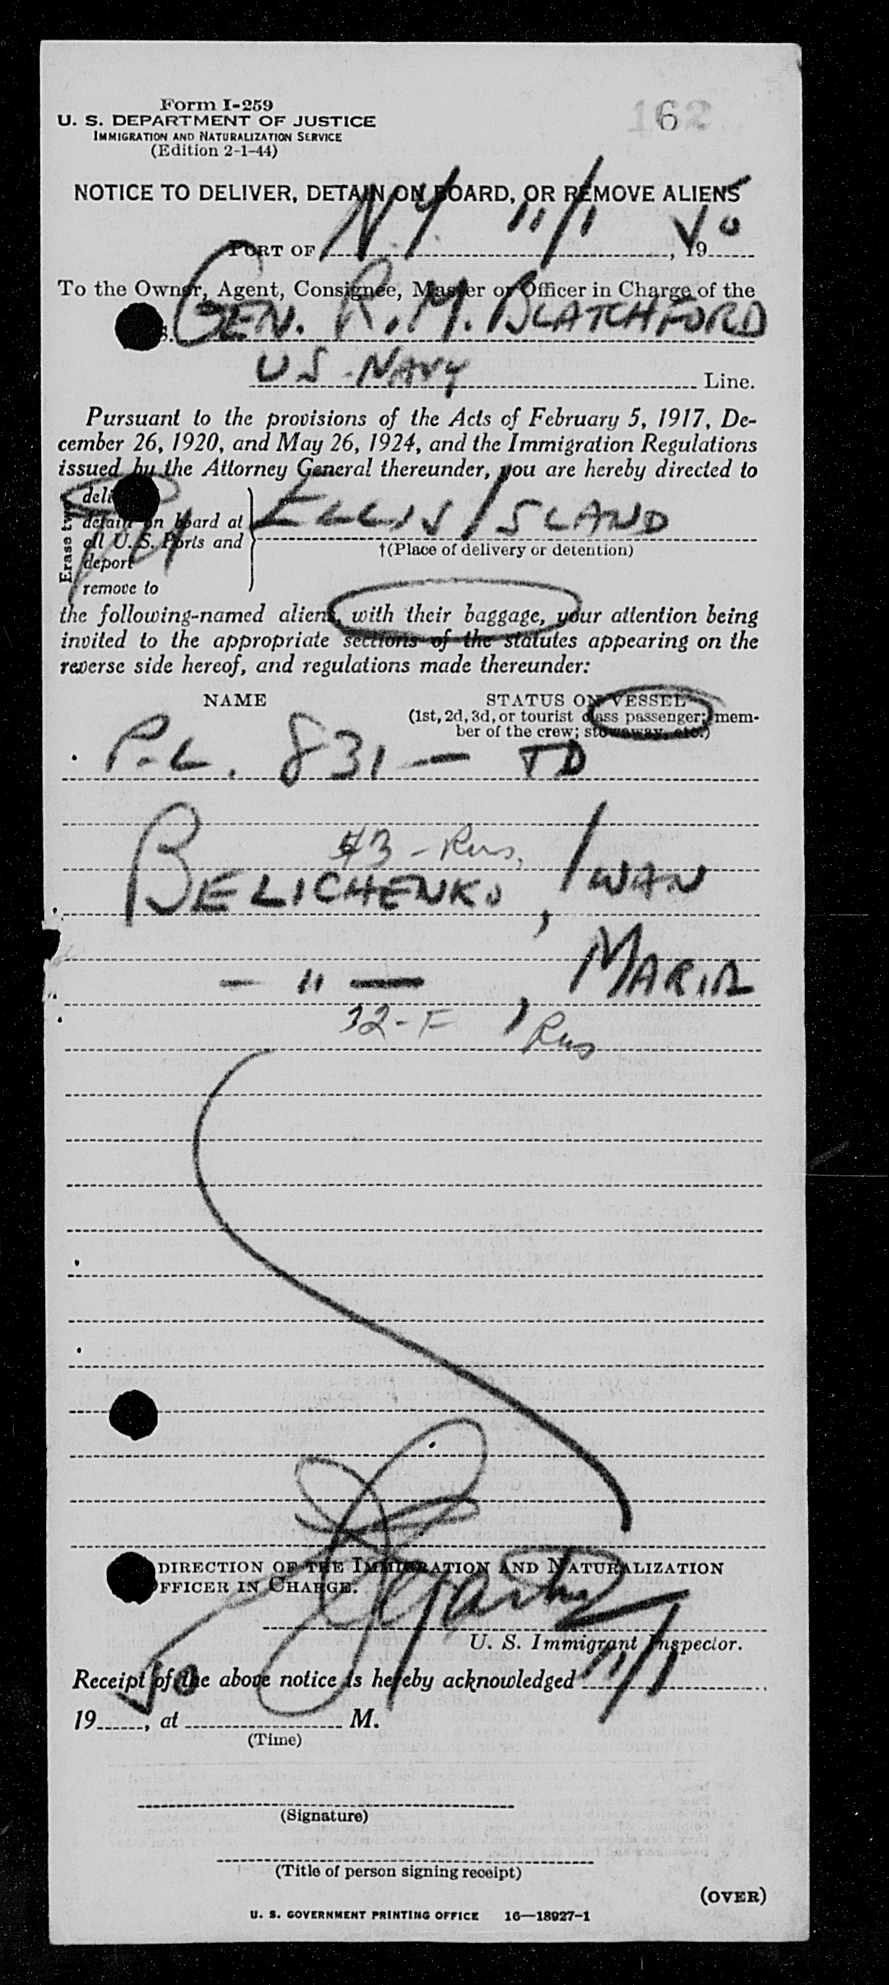 Form I-259
U. S. DEPARTMENT OF JUSTICE
IMMIGRATION AND NATURALIZATION SERVICE
(Edition 2-1-44)
162
NOTICE TO DELIVER, DETAIN ON BOARD, OR REMOVE ALIENS
PORT OF N.Y. 11/1, 1950
To the Owner, Agent, Consignee, Master or Officer in Charge of the
S. GEN. R. M. BLATCHFORD
US NAVY Line.
Pursuant to the provisions of the Acts of February 5, 1917, De-
cember 26, 1920, and May 26, 1924, and the Immigration Regulations
issued by the Attorney General thereunder, you are hereby directed to
Erase two
deli
detain on board at
all U. S. Ports and
deport
remove to
ELLIS ISLAND
†(Place of delivery or detention)
the following-named aliens, with their baggage, your attention being
invited to the appropriate sections of the statutes appearing on the
reverse side hereof, and regulations made thereunder:
NAME
STATUS ON VESSEL
(1st, 2d, 3d, or tourist class passenger; mem-
ber of the crew; stowaway, etc.)
P.L. 831 — TD
43 - Rus.
BELICHENKO, IWAN
— " — , MARIA
32-F Rus
DIRECTION OF THE IMMIGRATION AND NATURALIZATION
FFICER IN CHARGE.
U. S. Immigrant Inspector.
Receipt of the above notice is hereby acknowledged 11/1
1950, at M.
(Time)
(Signature)
(Title of person signing receipt)
(OVER)
U. S. GOVERNMENT PRINTING OFFICE 16—18927-1